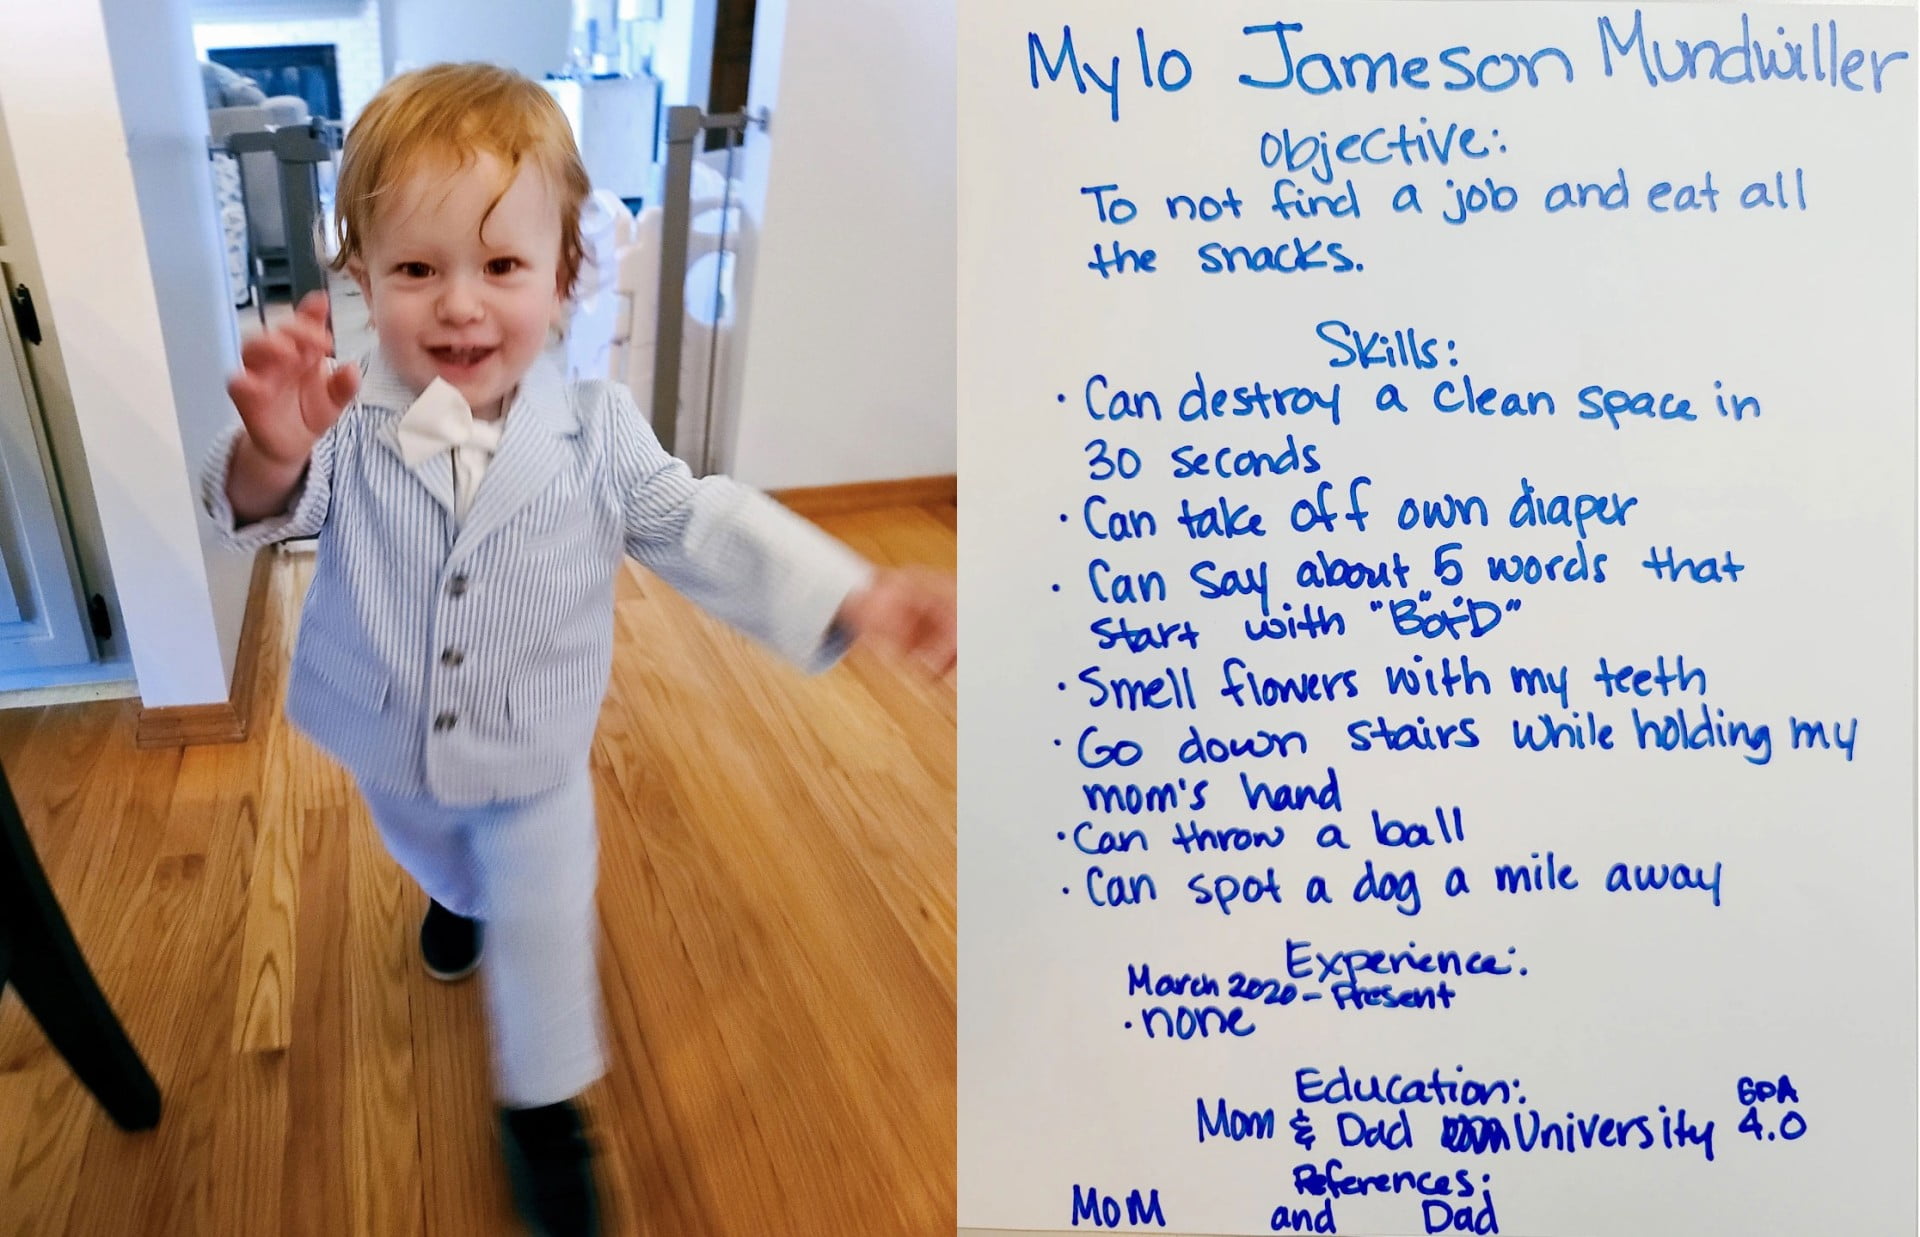 Mylo Jameson Mundwiller
Objective:
To not find a job and eat all
the snacks.
Skills:
• Can destroy a clean space in
30 seconds
• Can take off own diaper
• Can say about 5 words that
start with "B" or "D"
• Smell flowers with my teeth
• Go down stairs while holding my
mom's hand
• Can throw a ball
• Can spot a dog a mile away
Experience:
March 2020 - Present
• none
Education:
GPA
Mom & Dad University 4.0
References:
MOM and Dad